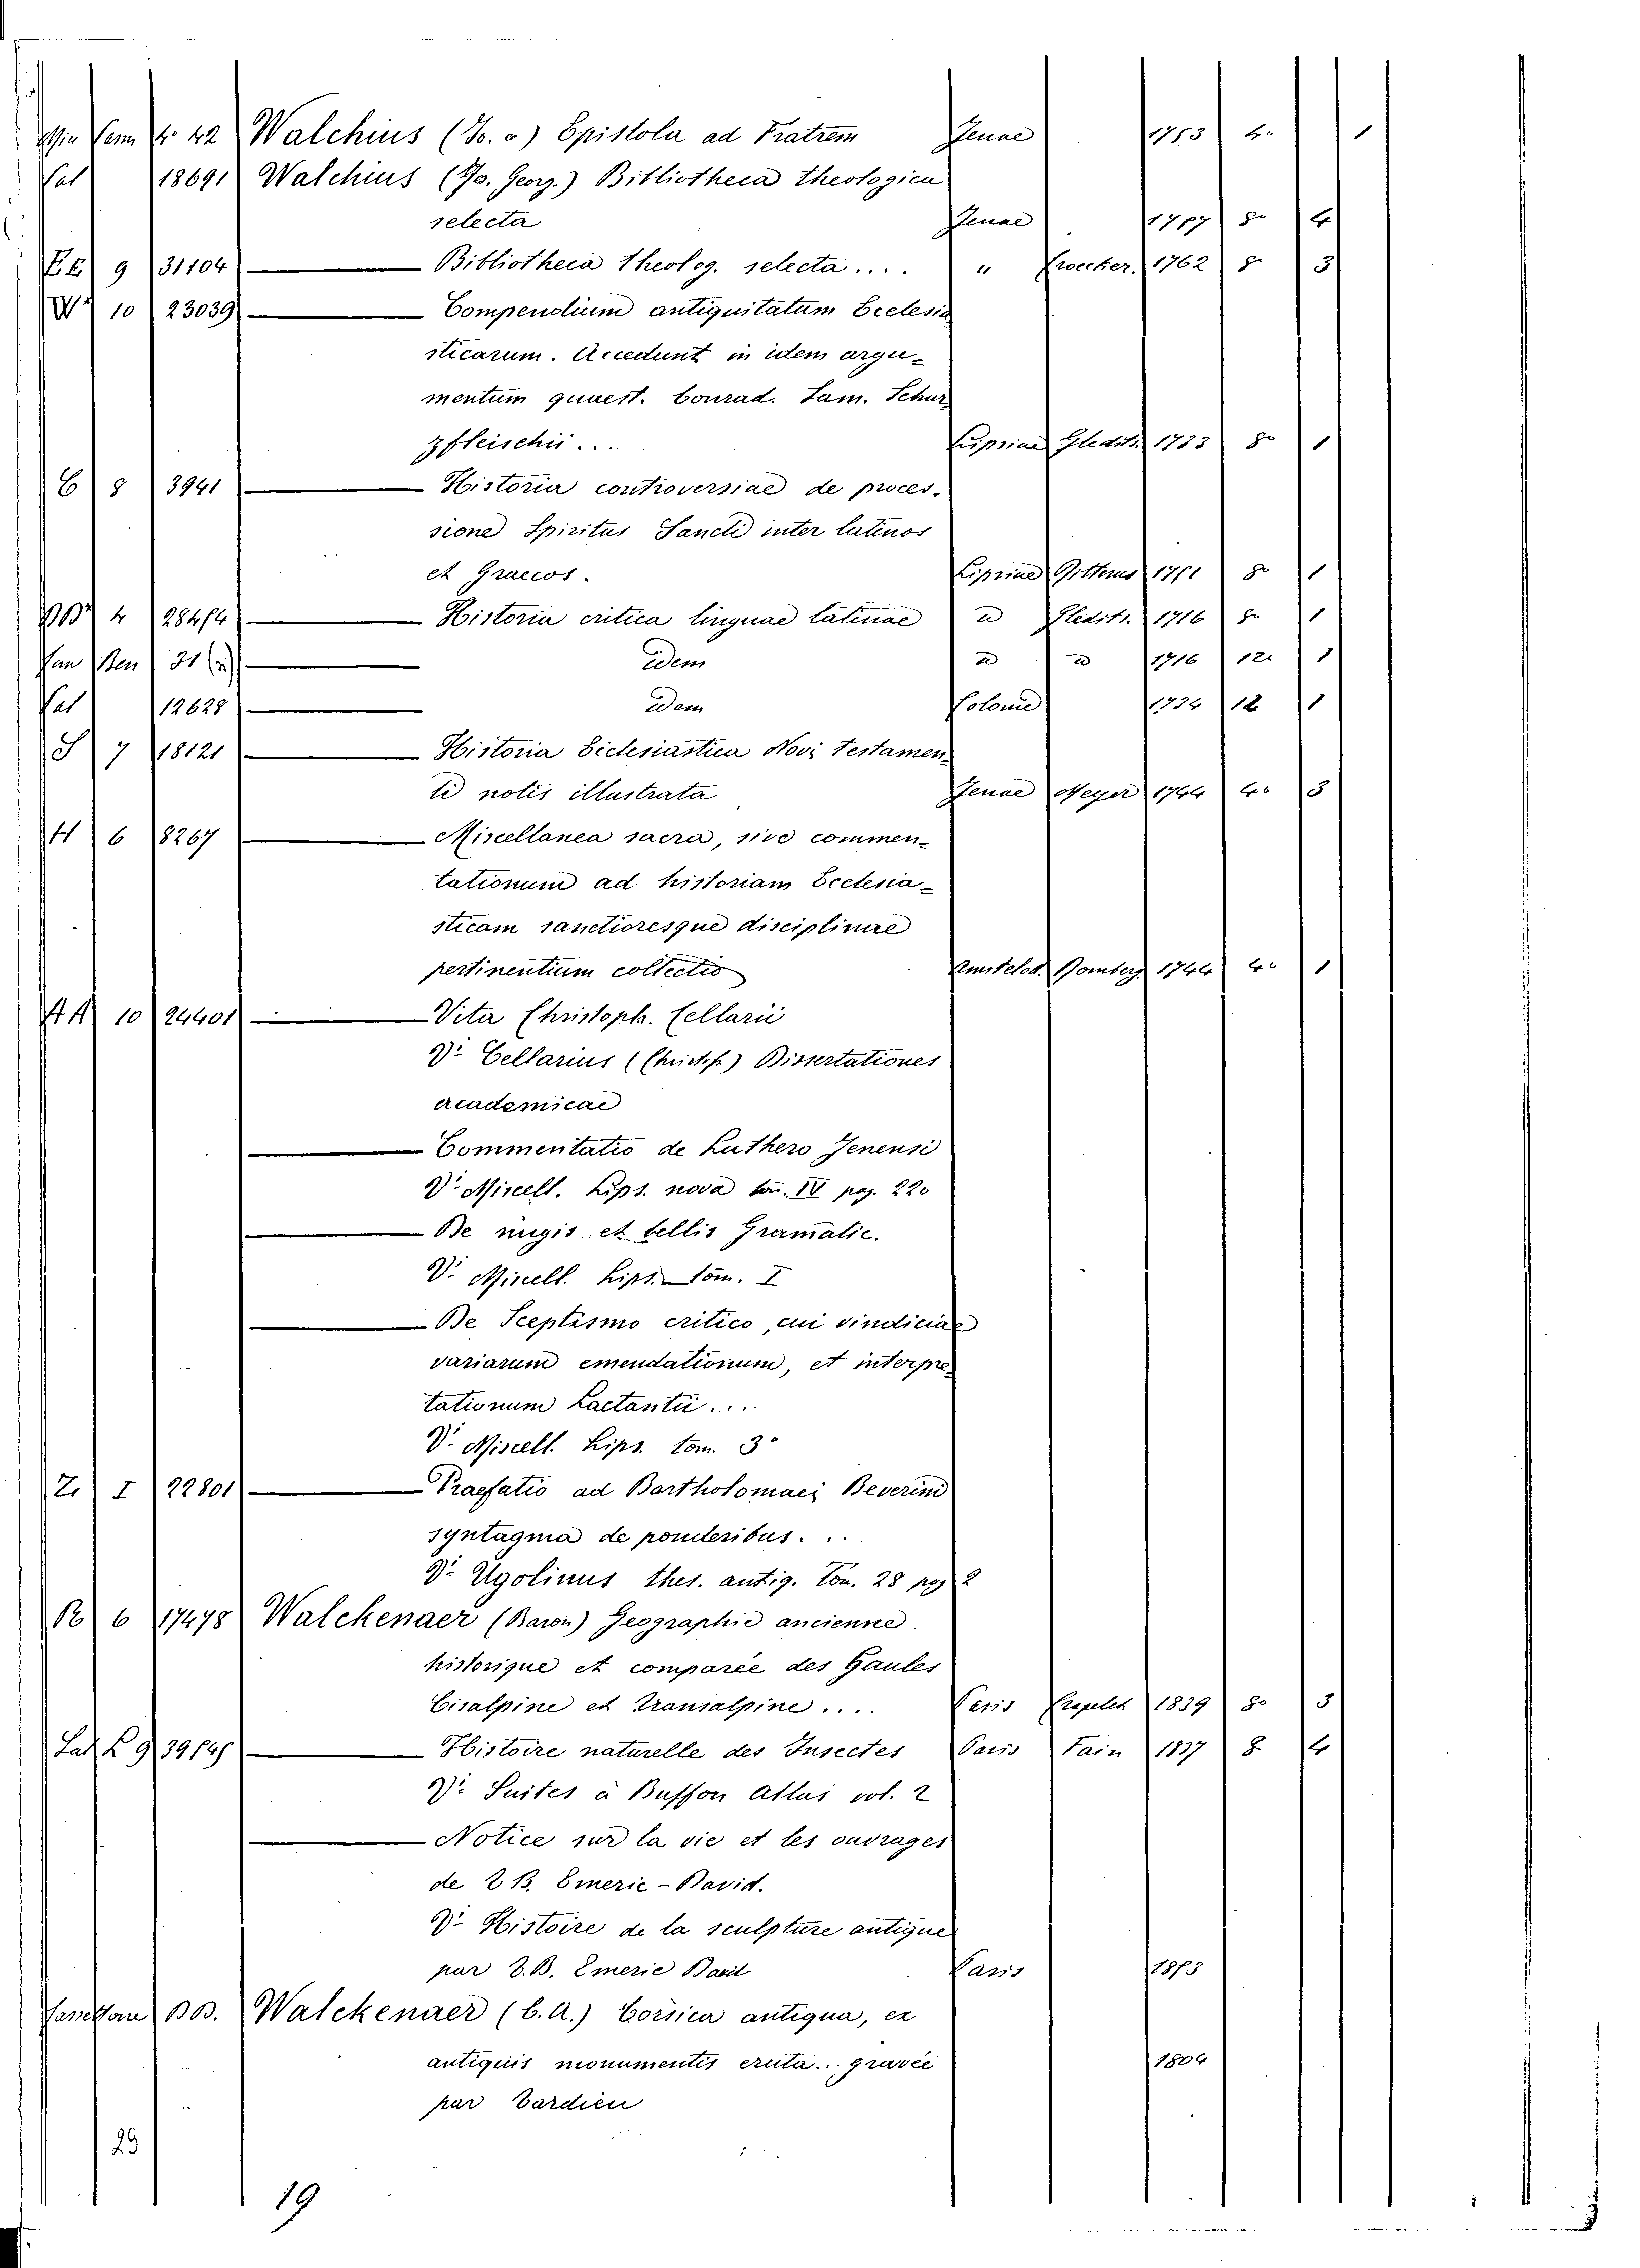 42 Walchius (Jo. a) Epistola ad Fratrem Jenae 1753 4o 1
Sal 18691 Walchius (Jo. Georg.) Bibliotheca theologica
selecta Jenae 1757 8o 4
EE 9 31104 Bibliotheca theolog. selecta .... " Croecker. 1762 8o 3
10 23039 Compendium antiquitatum Ecclesia
sticarum. Accedunt in idem argu-
mentum quaest. Conrad. Sam. Schur
zfleischii ... Lipsiae Gledits. 1733 8o 1
E 8 3941 Historia controversiae de proces-
sione Spiritus Sancti inter latinos
et Graecos. Lipsiae 1751 8o 1
4 28474 Historia critica linguae latinae u Gledits. 1716 8o 1
31 idem u u 1716 12o 1
Sal 12628 idem Coloniae 1734 12 1
S 7 18121 Historia Ecclesiastica Novi Testamen
ti notis illustrata Jenae Meyer 1744 4o 3
H 6 8267 Miscellanea sacra, sive commen-
tationum ad historiam Ecclesia-
sticam sanctioresque disciplinae
pertinentium collectio Amstelod. Romberg 1744 4o 1
AA 10 24401 Vita Christoph. Cellarii
V. Cellarius (Christoph) Dissertationes
academicae
Commentatio de Luthero Jenensi
V. Miscell. Lips. nova tom. IV pag. 220
De nugis et bellis Gramatic.
V. Miscell. Lips. tom. I
De Sceptismo critico, cui vindiciae
variarum emendationum, et interpre
tationum Lactantii ....
V. Miscell. Lips. tom. 3o
Z. I 22801 Praefatio ad Bartholomaei Beverini
syntagma de ponderibus. ..
V. Ugolinus thes. antiq. tom. 28 pag 2
R 6 17478 Walckenaer (Baron) Geographie ancienne
historique et comparée des Gaules
Cisalpine et transalpine .... Paris Crapelet 1839 8o 3
9 Histoire naturelle des Insectes Paris Fain 1837 8 4
V. Suites à Buffon Atlas vol. 2
Notice sur la vie et les ouvrages
de T. B. Emeric-David.
V. Histoire de la sculpture antique
par T. B. Emeric David Paris
BB. Walckenaer (C. A.) Corsica antiqua, ex
antiquis monumentis eruta .. gravée 1804
par Tardieu
29
19